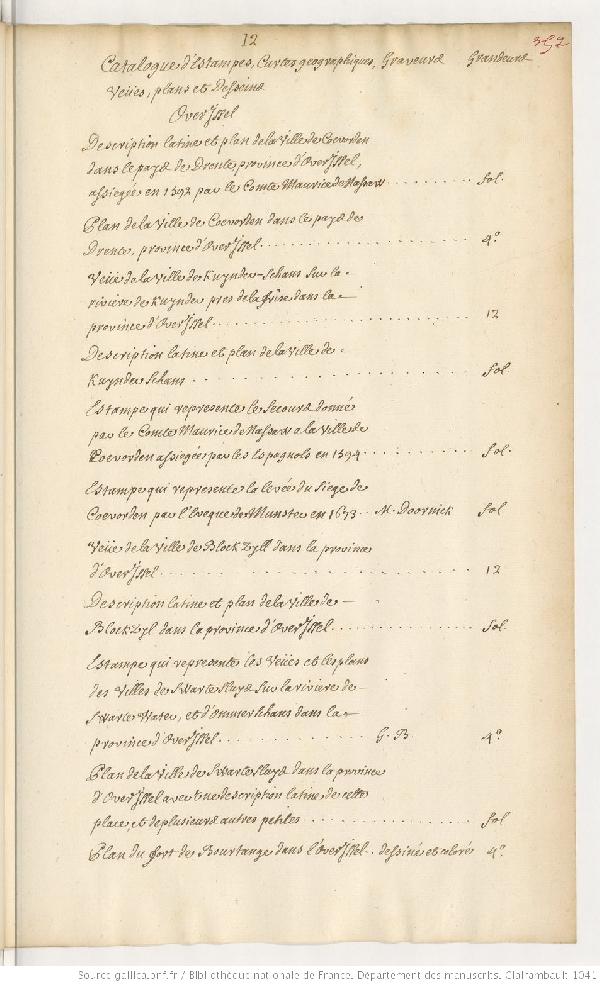 12
352
Catalogue d'Estampes, Cartes geographiques, Graveurs Grandeurs
Veües, plans et Desseins
OverJssel
Description latine et plan de la Ville de Coevorden
dans le pays de Drente province d'OverJssel,
assiegée en 1592 par le Comte Maurice de Nassaw . . . . . . . . . fol.
Plan de la Ville de Coevorden dans le pays de
Drente, province d'OverJssel . . . . . . . . . . . . . . . . . . . . 4.º
Veüe de la Ville de Kuynder-Schans sur la
riviere de Kuynder pres de la frise dans la
province d'OverJssel . . . . . . . . . . . . . . . . . . . . . . . . 12
Description latine et plan de la Ville de
Kuynder Schans . . . . . . . . . . . . . . . . . . . . . . . . . fol
Estampe qui represente le secours donné
par le Comte Maurice de Nassaw a la Ville de
Coevorden assiegée par les Espagnols en 1594 . . . . . . . . . . fol.
Estampe qui represente la levée du siege de
Coevorden par l'Eveque de Munster en 1673 . . M. Doornick fol
Veüe de la Ville de Block Zyll dans la province
d'OverJssel . . . . . . . . . . . . . . . . . . . . . . . . . . . . 12
Description latine et plan de la Ville de
Block Zyl dans la province d'OverJssel . . . . . . . . . . . . . fol.
Estampe qui represente les Veües et les plans
des Villes de Swarte Sluys sur la riviere de
Swarte Water, et d'Ommerschans dans la
province d'OverJssel . . . . . . . . . . . . . . G. B 4.º
Plan de la Ville de Swarte Sluys dans la province
d'OverJssel avec une description latine de cette
place et de plusieurs autres petites . . . . . . . . . . . . . . . fol
Plan du fort de Bourtange dans l'OverJssel . . dessiné et coloré 4.º
Source gallica.bnf.fr / Bibliothèque nationale de France. Département des manuscrits. Clairambault 1041